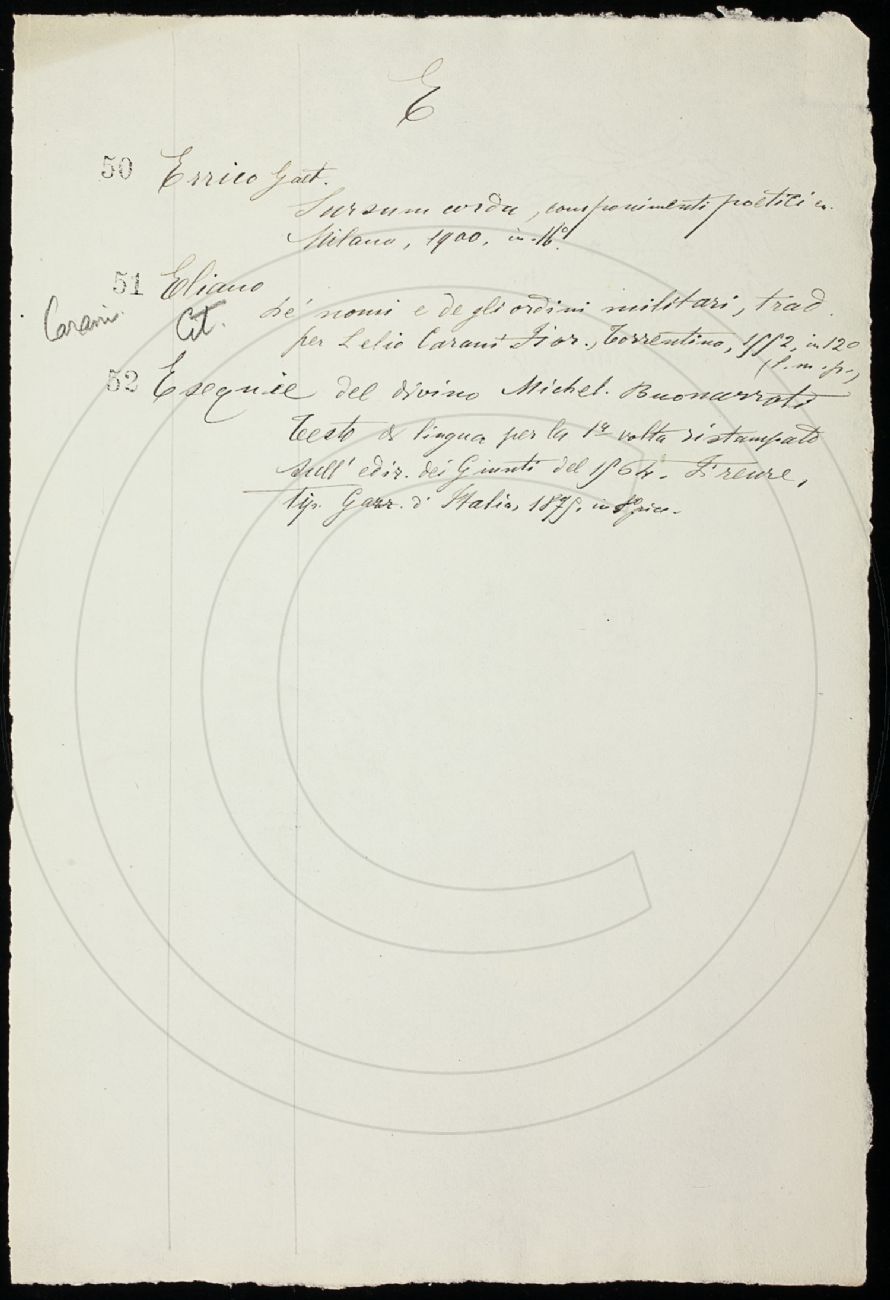 E
50 Errico Gaet.
Sursum corda, componimenti poetici
Milano, 1900, in-16°.
51 Eliano
de' nomi e degli ordini militari, trad.
Carani. Cit.
per Lelio Carani Fior., Torrentino, 1552, in 12°
(l. m. p.)
52 Esequie del divino Michel. Buonarroti
Testo di lingua per la 1a volta ristampato
sull' ediz. dei Giunti del 1564. Firenze,
tip. Gazz. d' Italia, 1875, in 8° picc.